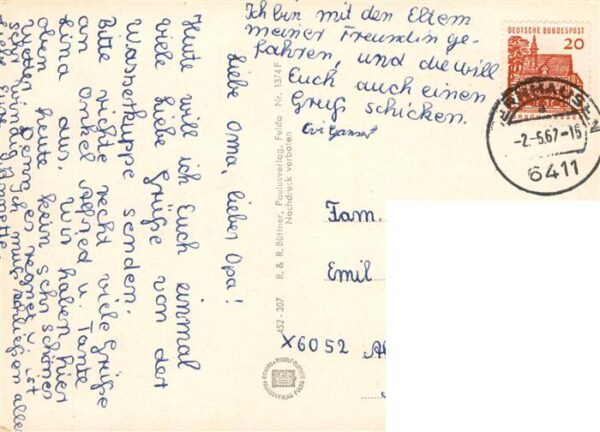 Liebe Oma, lieber Opa!
Heute will ich Euch einmal
viele liebe Grüße von der
Wasserkuppe senden.
Bitte richte recht viele Grüße
an Onkel Alfred u. Tante
Lina aus. Wir haben hier
oben heute kein sehr schönes
Wetter, denn es regnet u. ist
sehr windig. Ich muß schließen alles
Liebe Eure
Ich bin mit den Eltern
meiner Freundin ge-
fahren, und die will
Euch auch einen
Gruß schicken.
452-307 R. & R. Büttner, Paulusverlag, Fulda Nr. 1374 F
Nachdruck verboten
PAULUSVERLAG FULDA
DEUTSCHE BUNDESPOST
20
-2.-5.67-15
6411
Fam.
Emil
X6052